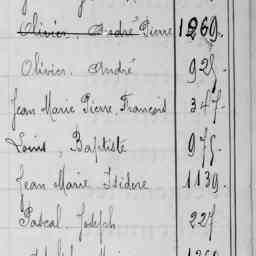 Olivier. André Pierre 1269.
Olivier. André 925.
Jean Marie Pierre François 347.
Louis, Baptiste 975.
Jean Marie Isidore 1139.
Pascal Joseph 227